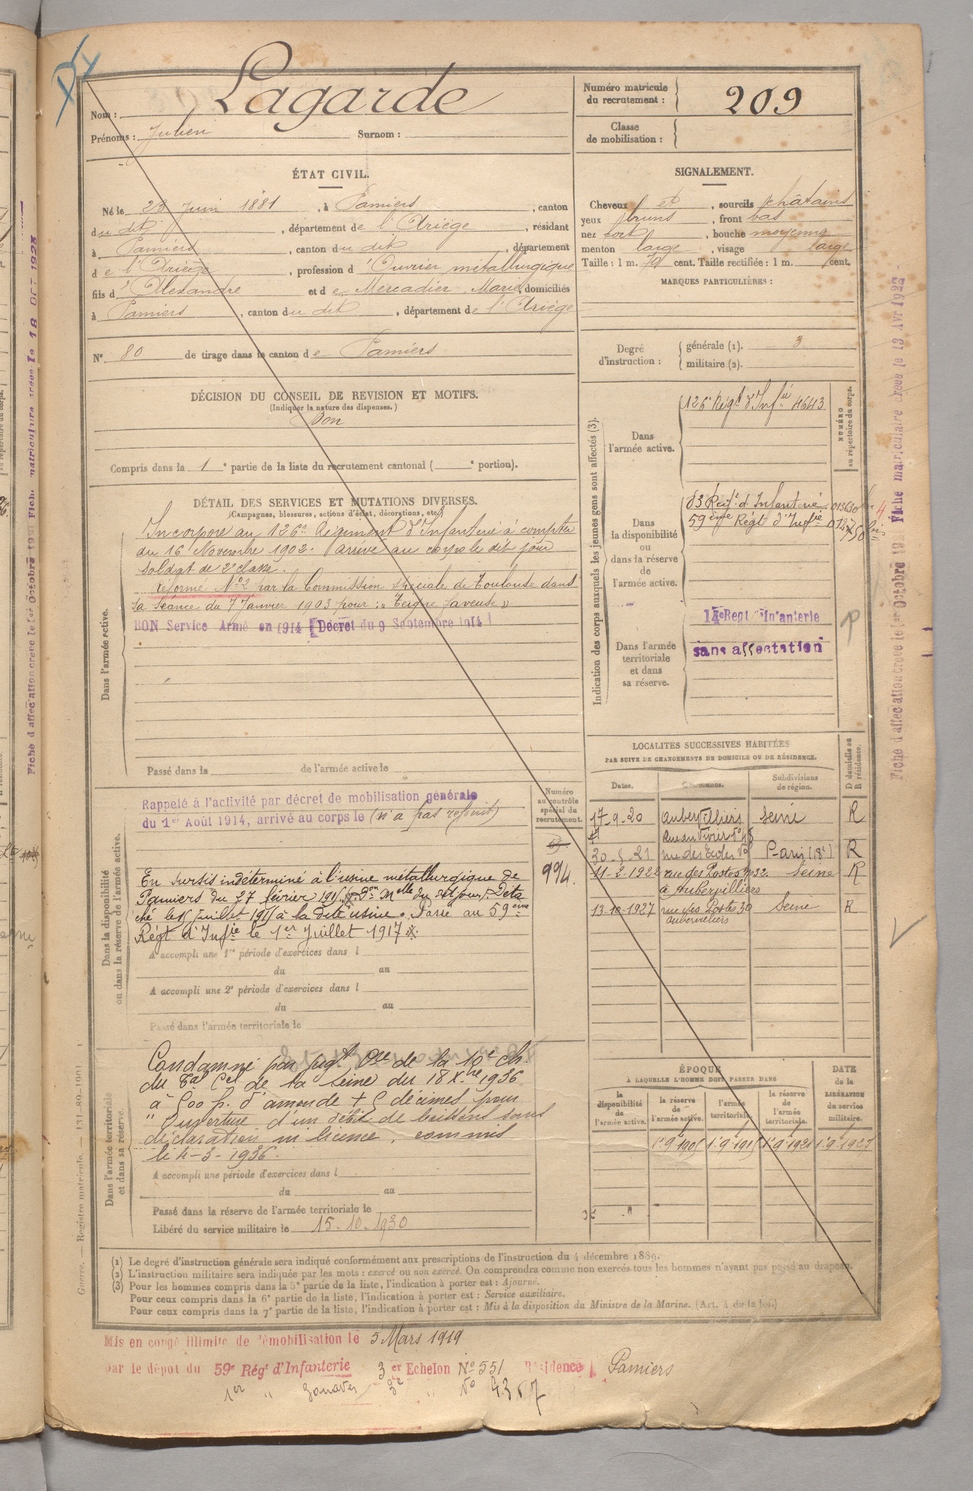 Nom : Lagarde
Prénoms : Julien Surnom :
Numéro matricule
du recrutement : 209
Classe
de mobilisation :
ÉTAT CIVIL.
Né le 23 Juin 1881, à Pamiers, canton
du dit, département de l'Ariège, résidant
à Pamiers, canton du dit, département
de l'Ariège, profession d'Ouvrier métallurgique
fils d'Alexandre et de Mercadier Marie, domiciliés
à Pamiers, canton du dit, département de l'Ariège
N° 80 de tirage dans le canton de Pamiers
SIGNALEMENT.
Cheveux et, sourcils châtains
yeux bruns, front bas
nez fort, bouche moyenne
menton large, visage large
Taille : 1 m. cent. Taille rectifiée : 1 m. cent.
MARQUES PARTICULIÈRES :
Degré
d'instruction : générale (1). 3
militaire (2).
DÉCISION DU CONSEIL DE REVISION ET MOTIFS.
(Indiquer la nature des dispenses.)
Bon
Compris dans la 1e partie de la liste du recrutement cantonal ( e portion).
DÉTAIL DES SERVICES ET MUTATIONS DIVERSES.
(Campagnes, blessures, actions d'éclat, décorations, etc.)
Dans l'armée active.
Incorporé au 126e Régiment d'Infanterie à compter
du 16 Novembre 1902. Arrivé au corps le dit jour
soldat de 2e classe.
Réformé N°2 par la Commission spéciale de Toulouse dans
sa séance du 7 Janvier 1903 pour : « Teigne faveuse »
BON Service Armé en 1914 [Décret du 9 Septembre 1914]
Passé dans la de l'armée active le
Indication des corps auxquels les jeunes gens sont affectés (3).
NUMÉRO
au répertoire du corps.
Dans
l'armée active.
126e Régt d'Infie 4643
Dans
la disponibilité
ou
dans la réserve
de
l'armée active.
83 Régt d'Infanterie
59ème Régt d'Infie
Dans l'armée
territoriale
et dans
sa réserve.
14e Regt Infanterie
sans affectation
LOCALITES SUCCESSIVES HABITÉES
PAR SUITE DE CHANGEMENTS DE DOMICILE OU DE RÉSIDENCE.
Dates. Communes. Subdivisions
de région. D domicile ou
R résidence.
17-9-20 Aubervilliers Seine R
30-5-21 rue des Ecoles Paris R
11-2-1922 rue des Postes 32 Seine R
à Aubervilliers
13-10-1927 rue des Postes 30 Seine R
Aubervilliers
Dans la disponibilité
ou dans la réserve de l'armée active.
Rappelé à l'activité par décret de mobilisation générale
du 1er Août 1914, arrivé au corps le (n'a pas rejoint)
Numéro
au contrôle
spécial du
recrutement.
994.
En sursis indéterminé à l'usine métallurgique de
Pamiers du 27 février 1915
à la dite usine. Passé au 59ème
Régt d'Infie le 1er Juillet 1917
A accompli une 1re période d'exercices dans l
du au
A accompli une 2e période d'exercices dans l
du au
Passé dans l'armée territoriale le
Dans l'armée territoriale
et dans sa réserve.
Condamné par jugt de la 10e ch.
du Cel de la Seine du 18 Xbre 1936
à 500 f. d'amende + 5 décimes pour
" Ouverture d'un débit de boissons sans
déclaration ni licence, commis
le 4-5-1936.
A accompli une période d'exercices dans l
du au
Passé dans la réserve de l'armée territoriale le
Libéré du service militaire le 15.10.1930
ÉPOQUE
À LAQUELLE L'HOMME DOIT PASSER DANS
DATE
de la
LIBÉRATION
du service
militaire.
la
disponibilité
de
l'armée active.
la réserve
de
l'armée active.
l'armée
territoriale.
la réserve
de
l'armée
territoriale.
1.9.1905 1.9.1915 1.9.1921 1.9.1927
(1) Le degré d'instruction générale sera indiqué conformément aux prescriptions de l'instruction du 4 décembre 1889.
(2) L'instruction militaire sera indiquée par les mots : exercé ou non exercé. On comprendra comme non exercés tous les hommes n'ayant pas passé au drapeau.
(3) Pour les hommes compris dans la 5e partie de la liste, l'indication à porter est : Ajourné.
Pour ceux compris dans la 6e partie de la liste, l'indication à porter est : Service auxiliaire.
Pour ceux compris dans la 7e partie de la liste, l'indication à porter est : Mis à la disposition du Ministre de la Marine. (Art. 4 de la loi.)
Mis en congé illimité de démobilisation le 5 Mars 1919
par le dépôt du 59e Rég' d'Infanterie 3er Echelon N° 551 Résidence Pamiers
1er " Zouaves